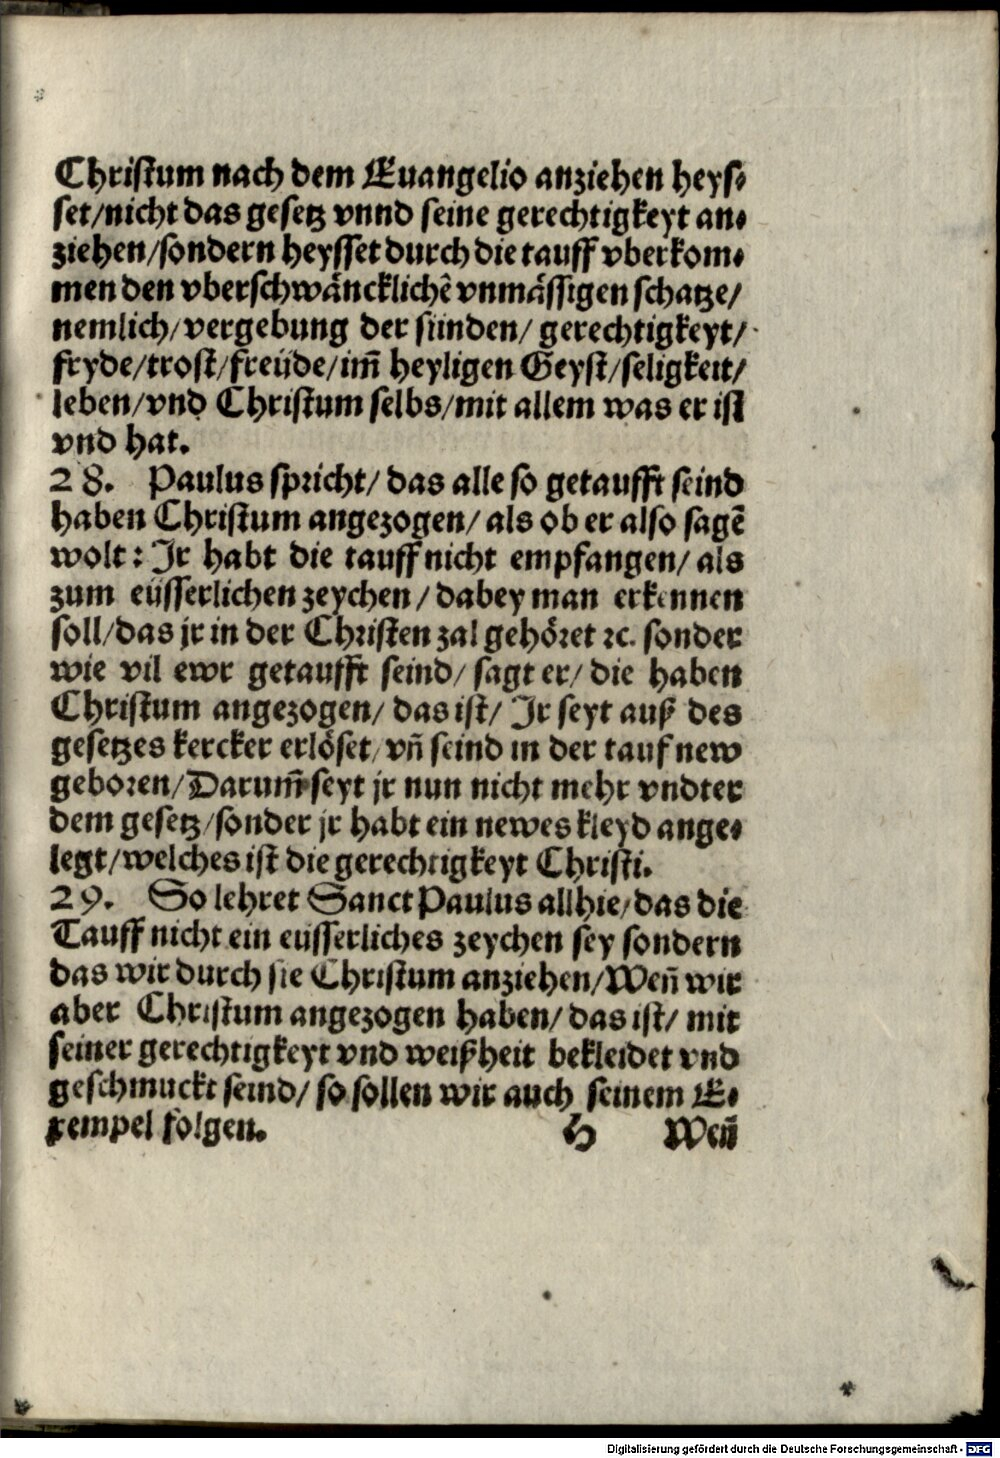 Christum nach dem Euangelio anziehen heys-
set/nicht das gesetz vnnd seine gerechtigkeyt an-
ziehen/sondern heysset durch die tauff vberkom-
men den vberschwäncklichē vnmässigen schatze/
nemlich/vergebung der sünden/ gerechtigkeyt/
fryde/trost/freüde/im̄ heyligen Geyst/seligkeit/
leben/vnd Christum selbs/mit allem was er ist
vnd hat.
28. Paulus spricht/ das alle so getaufft seind
haben Christum angezogen/ als ob er also sagē
wolt: Jr habt die tauff nicht empfangen/ als
zum eüsserlichen zeychen/ dabey man erkennen
soll/das jr in der Christen zal gehöret ꝛc. sonder
wie vil ewr getaufft seind/ sagt er/ die haben
Christum angezogen/ das ist/ Jr seyt auß des
gesetzes kercker erlöset/ vn̄ seind in der tauf new
geboren/Darum̄ seyt jr nun nicht mehr vndter
dem gesetz/sonder jr habt ein newes kleyd ange-
legt/welches ist die gerechtigkeyt Christi.
29. So lehret Sanct Paulus allhie/das die
Tauff nicht ein eüsserliches zeychen sey sondern
das wir durch sie Christum anziehen/Wen̄ wir
aber Christum angezogen haben/ das ist/ mit
seiner gerechtigkeyt vnd weißheit bekleidet vnd
geschmuckt seind/ so sollen wir auch seinem E-
xempel folgen. H Wen̄
Digitalisierung gefördert durch die Deutsche Forschungsgemeinschaft - DFG